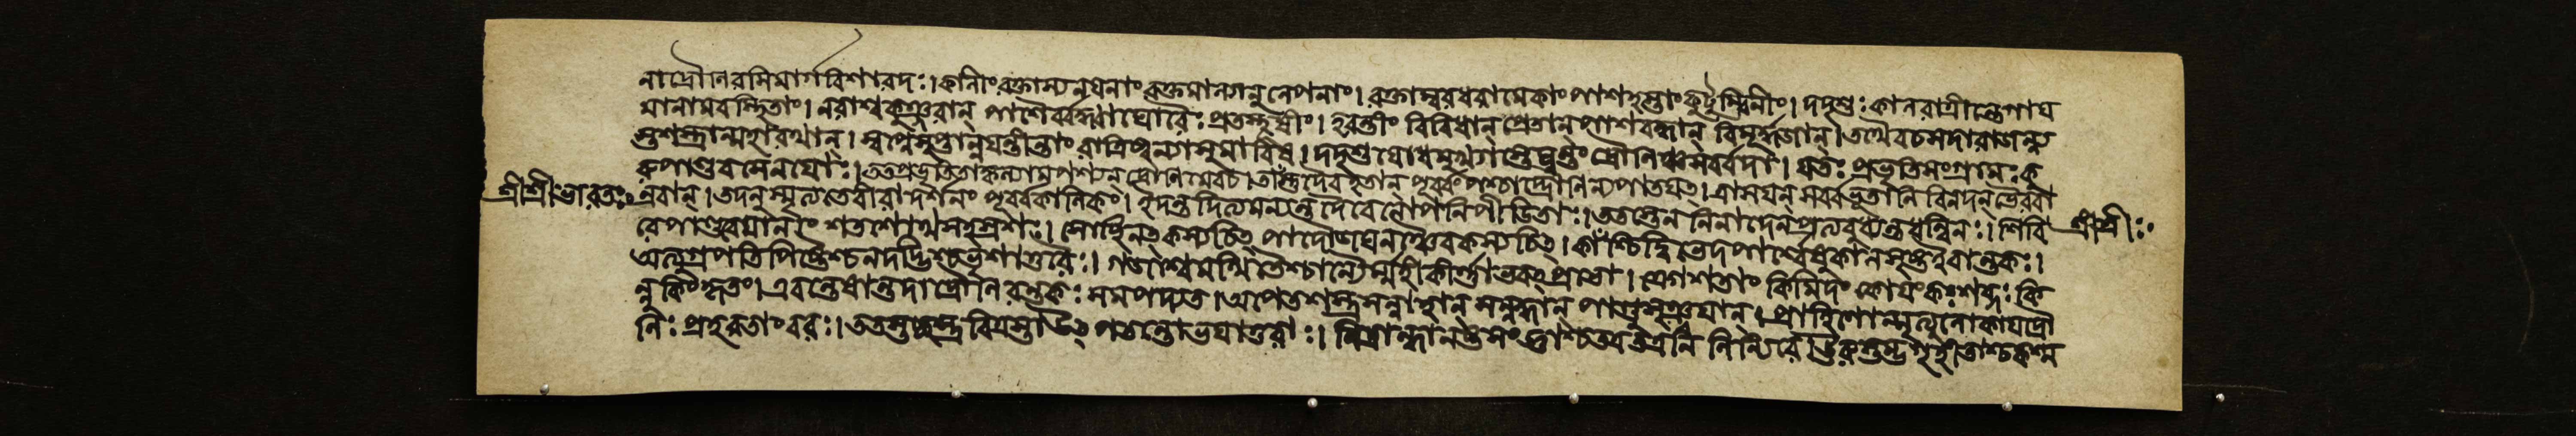 না দ্রৌনিরসিমার্গবিশারদঃ। কালীং রক্তাস্যনয়নাং রক্তমাল্যানুলেপনাং। রক্তাম্বরধরামেকাং পাশহস্তাং কুটুম্বিনীং। দদৃশুঃ কালরাত্রীন্তে গায়
মানামবস্থিতাং। নরাশ্বকুঞ্জরান্ পাশৈর্বদ্ধ্বা ঘোরৈঃ প্রতস্থুষীং। হরন্তীং বিবিধান্ প্রেতান্ পাশবদ্ধান্ বিমূর্দ্ধজান্। তথৈব চ মদারাজন্ন্য
স্তশস্ত্রান্মহারথান্। স্বপ্নে সুপ্তান্নয়ন্তীন্তাং রাত্রিষ্বন্যাসু মারিষ। দদৃশুর্যোধমুখ্যাস্তে ঘ্নন্তং দ্রৌনিঞ্চ সর্ব্বদা। যতঃ প্রভৃতি সংগ্রামঃ কু
রুপাণ্ডবসেনযোঃ। ততঃপ্রভৃতি তাং কন্যামপশ্যন্ দ্রৌনিমেব চ। তাংস্তু দৈবহতান্ পূর্ব্বং পশ্চাদ্দ্রৌনির্ন্যপাতযত্। ত্রাসযন্ সর্ব্বভূতানি বিনদন্ ভৈরবা
শ্রীশ্রীঃ ভারতঃ ন্রবান্। তদনুস্মৃত্য তে বীরা দর্শনং পূর্ব্বকালিকং। ইদন্তদিত্যমন্যন্ত দৈবেনোপনিপীডিতাঃ। ততস্তেন নিনাদেন প্রত্যবুধ্যন্ত ধন্বিনঃ। শিবি শ্রীশ্রীঃ
রে পাণ্ডবেযানাং শতশোথ সহস্রশঃ। সোচ্ছিনত্ কস্যচিত্ পাদৌ জঘনঞ্চৈব কস্যচিত্। কাংশ্চিদ্বিভেদ পার্শ্বেষু কালসৃষ্ট ইবান্তকঃ।
অত্যুগ্রপ্রতিপিষ্টৈশ্চ নদদ্ভিশ্চ ভৃশাতুরৈঃ। গজাশ্বমথিতৈশ্চান্যৈর্ম্মহী কীর্ণ্ণাভবত্ প্রভো। ক্রোশতাং কিমিদং কোযং কঃ শব্দঃ কি
ন্নু কিং কৃতং। এবন্তেষান্তদা দ্রৌনিরন্তকঃ সমপদ্যত। অপেতশস্ত্রসন্নাহান্ সন্নদ্ধান্ পাণ্ডুসৃঞ্জযান্। প্রাহিণোন্মৃত্যুলোকায দ্রৌ
নিঃ প্রহরতাং বরঃ। ততস্তচ্ছস্ত্রবিত্রস্তা উত্পতন্তো ভযাতুরাঃ। নিদ্রান্ধা নষ্টসংজ্ঞাশ্চ তত্র তত্র নিলিল্যিরে। ঊরুস্তম্ভগৃহীতাশ্চ কশ্ম